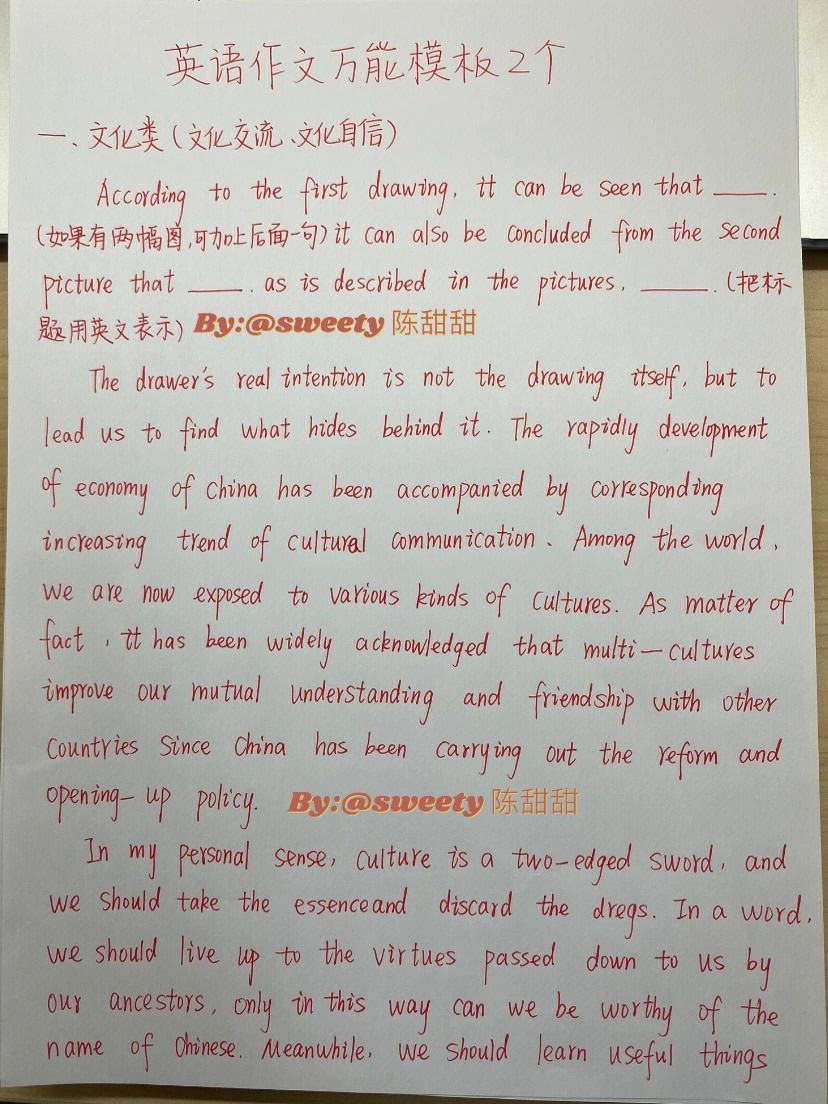 英语作文万能模板2个
一、文化类(文化交流、文化自信)
According to the first drawing, it can be seen that ____.
(如果有两幅图,可加上后面一句)it can also be concluded from the second
picture that ____. as is described in the pictures, ____. (把标
题用英文表示) By:@sweety 陈甜甜
The drawer's real intention is not the drawing itself, but to
lead us to find what hides behind it. The rapidly development
of economy of China has been accompanied by corresponding
increasing trend of cultural communication. Among the world,
we are now exposed to various kinds of cultures. As matter of
fact, it has been widely acknowledged that multi-cultures
improve our mutual understanding and friendship with other
countries since China has been carrying out the reform and
opening-up policy. By:@sweety 陈甜甜
In my personal sense, culture is a two-edged sword, and
we should take the essence and discard the dregs. In a word,
we should live up to the virtues passed down to us by
our ancestors, only in this way can we be worthy of the
name of Chinese. Meanwhile, we should learn useful things